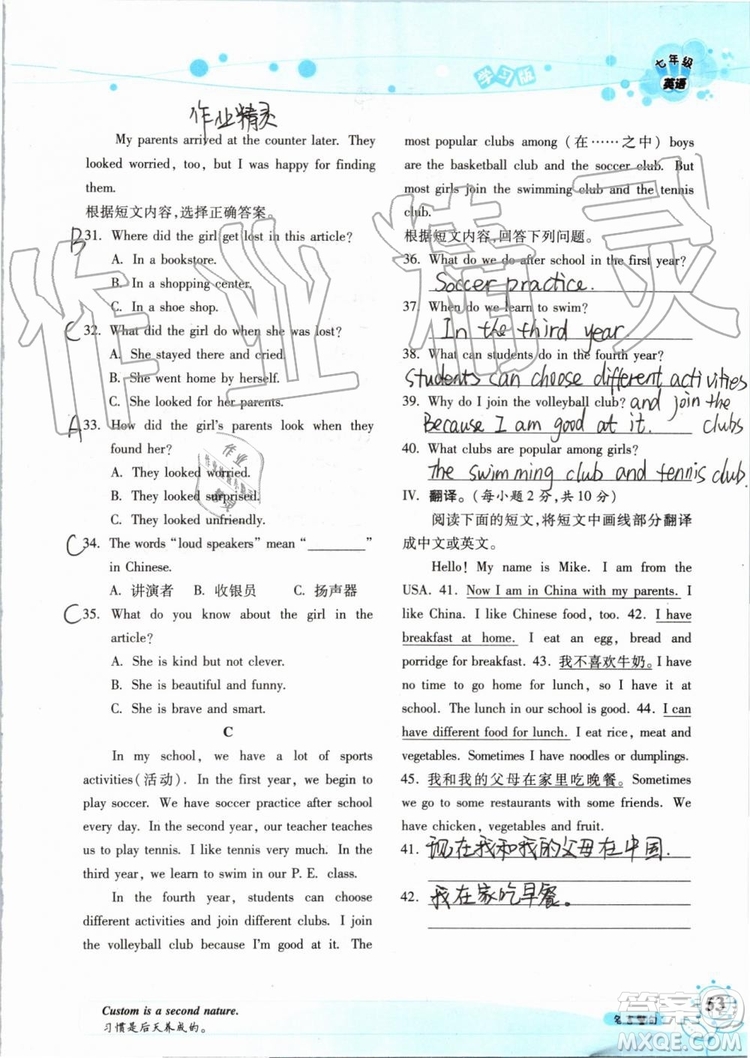 学习版
七年级
英语
作业精灵
My parents arrived at the counter later. They
looked worried, too, but I was happy for finding
them.
根据短文内容,选择正确答案。
B 31. Where did the girl get lost in this article?
A. In a bookstore.
B. In a shopping center.
C. In a shoe shop.
C 32. What did the girl do when she was lost?
A. She stayed there and cried.
B. She went home by herself.
C. She looked for her parents.
A 33. How did the girl's parents look when they
found her?
A. They looked worried.
B. They looked surprised.
C. They looked unfriendly.
C 34. The words “loud speakers” mean “________”
in Chinese.
A. 讲演者 B. 收银员 C. 扬声器
C 35. What do you know about the girl in the
article?
A. She is kind but not clever.
B. She is beautiful and funny.
C. She is brave and smart.
C
In my school, we have a lot of sports
activities(活动). In the first year, we begin to
play soccer. We have soccer practice after school
every day. In the second year, our teacher teaches
us to play tennis. I like tennis very much. In the
third year, we learn to swim in our P. E. class.
In the fourth year, students can choose
different activities and join different clubs. I join
the volleyball club because I'm good at it. The
most popular clubs among (在……之中) boys
are the basketball club and the soccer club. But
most girls join the swimming club and the tennis
club.
根据短文内容,回答下列问题。
36. What do we do after school in the first year?
Soccer practice.
37. When do we learn to swim?
In the third year
38. What can students do in the fourth year?
Students can choose different activities
39. Why do I join the volleyball club? and join the
Because I am good at it. clubs
40. What clubs are popular among girls?
The swimming club and tennis club.
IV. 翻译。(每小题2分,共10分)
阅读下面的短文,将短文中画线部分翻译
成中文或英文。
Hello! My name is Mike. I am from the
USA. 41. Now I am in China with my parents. I
like China. I like Chinese food, too. 42. I have
breakfast at home. I eat an egg, bread and
porridge for breakfast. 43. 我不喜欢牛奶。I have
no time to go home for lunch, so I have it at
school. The lunch in our school is good. 44. I can
have different food for lunch. I eat rice, meat and
vegetables. Sometimes I have noodles or dumplings.
45. 我和我的父母在家里吃晚餐。Sometimes
we go to some restaurants with some friends. We
have chicken, vegetables and fruit.
41. 现在我和我的父母在中国.
42. 我在家吃早餐。
Custom is a second nature.
习惯是后天养成的。
名言警句
53
答案圈
MXQE.COM
作业精灵